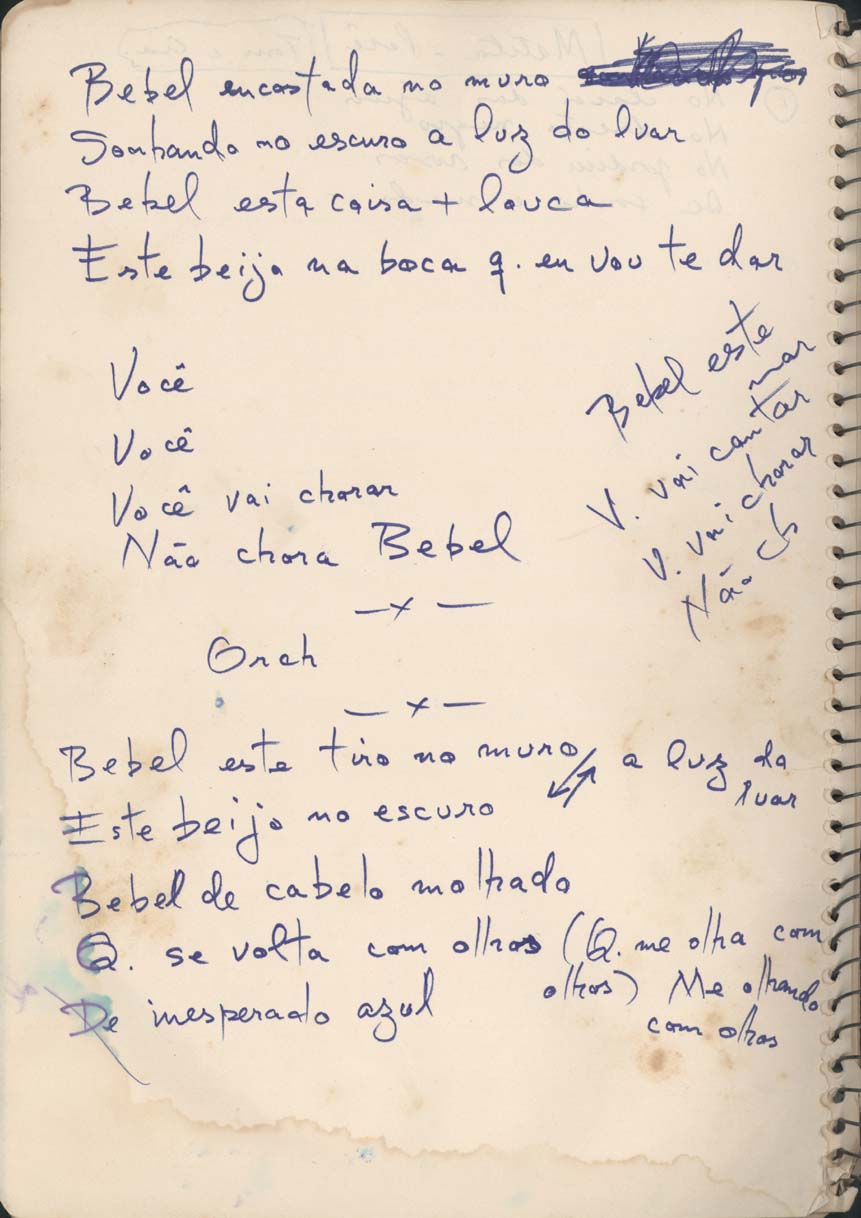 Bebel encostada no muro
Sonhando no escuro a luz do luar
Bebel esta coisa + louca
Este beijo na boca q. eu vou te dar
Você
Você
Você vai chorar
Não chora Bebel
Bebel este
mar
V. vai cantar
V. vai chorar
Não ch
—x—
Orch
—x—
Bebel este tiro no muro, a luz do
luar
Este beijo no escuro
Bebel de cabelo molhado
Q. se volta com olhos (Q. me olha com
olhos) Me olhando
com olhos
De inesperado azul